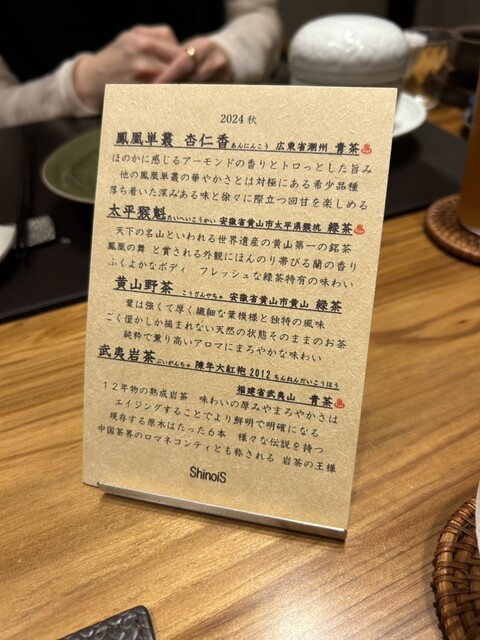 2024 秋
鳳凰単叢 杏仁香 あんにんこう 広東省潮州 青茶♨
ほのかに感じるアーモンドの香りとトロっとした旨み
他の鳳凰単叢の華やかさとは対極にある希少品種
落ち着いた深みある味と徐々に際立つ回甘を楽しめる
太平猴魁 たいへいこうかい 安徽省黄山市太平県猴坑 緑茶♨
天下の名山といわれる世界遺産の黄山第一の銘茶
鳳凰の舞 と賞される外観にほんのり帯びる蘭の香り
ふくよかなボディ フレッシュな緑茶特有の味わい
黄山野茶 こうざんやちゃ 安徽省黄山市黄山 緑茶
葉は強くて厚く繊細な葉模様と独特の風味
ごく僅かしか摘まれない天然の状態そのままのお茶
純粋で薫り高いアロマにまろやかな味わい
武夷岩茶 ぶいがんちゃ 陳年大紅袍 2012 ちんねんだいこうほう
福建省武夷山 青茶♨
12年物の熟成岩茶 味わいの厚みやまろやかさは
エイジングすることでより鮮明で明確になる
現存する原木はたった6本 様々な伝説を持つ
中国茶界のロマネコンティとも称される 岩茶の王様
ShinoiS